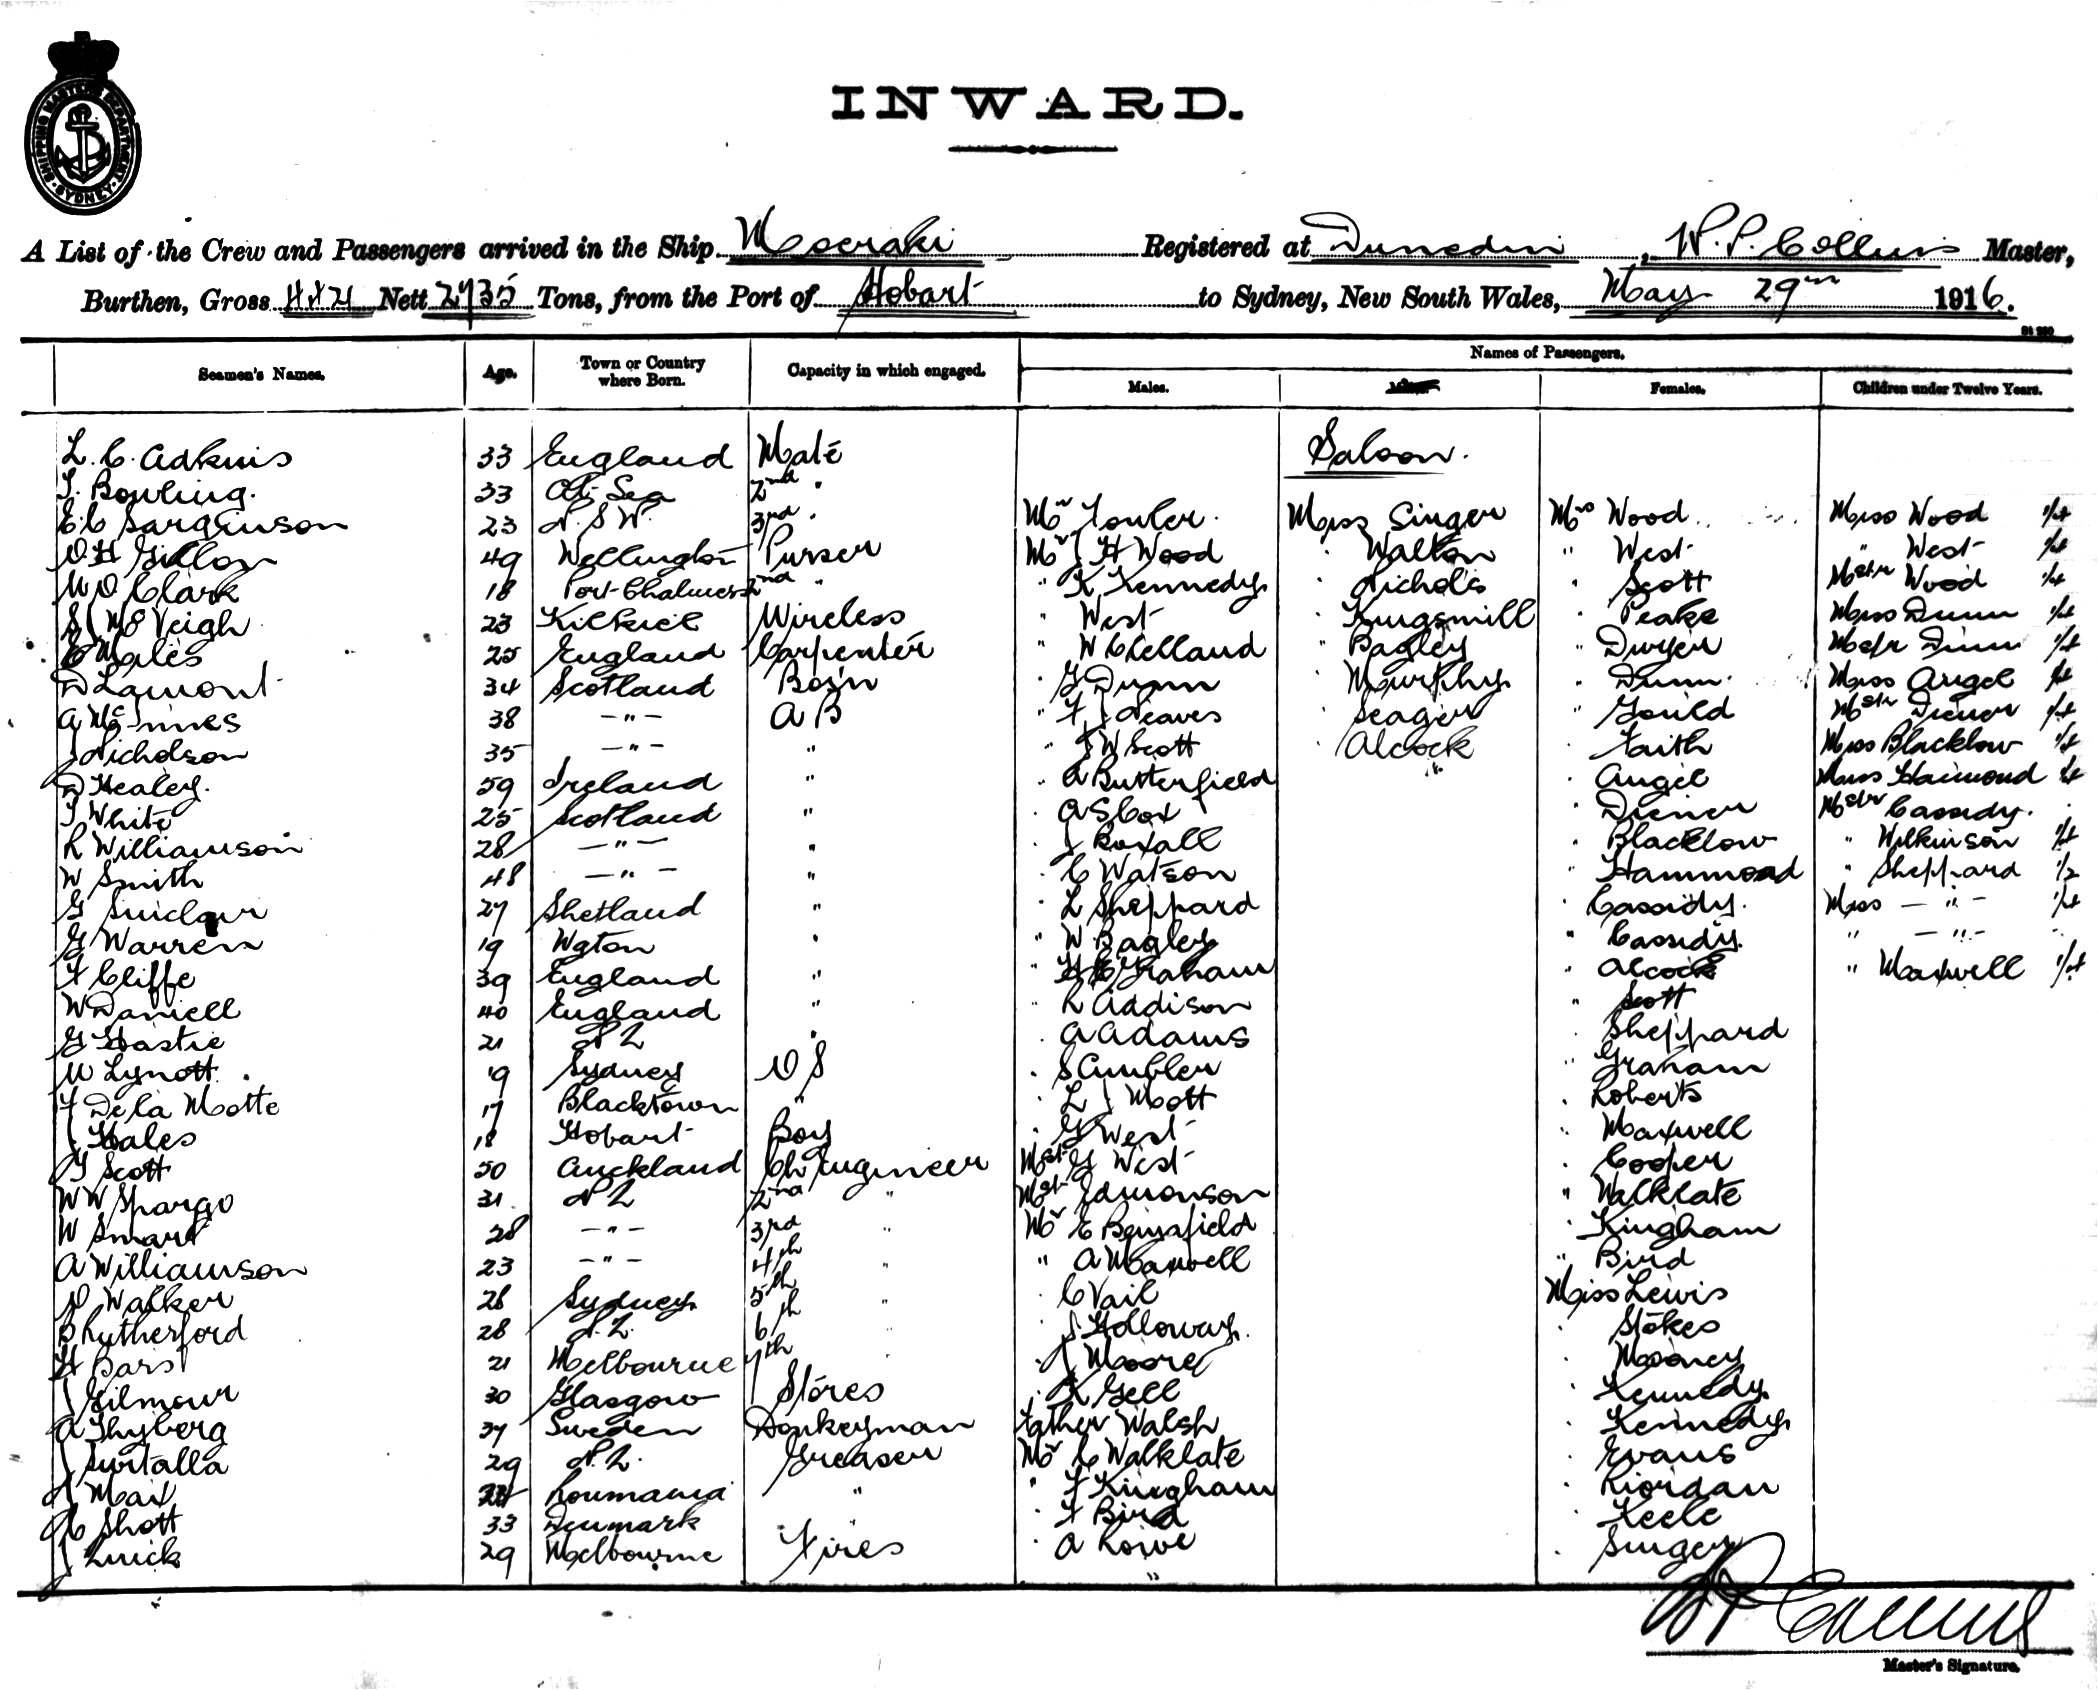 SHIPPING MASTERS DEPARTMENT
SYDNEY
INWARD.
A List of the Crew and Passengers arrived in the Ship Moeraki Registered at Dunedin, W. P. Collins Master,
Burthen, Gross 4421 Nett 2735 Tons, from the Port of Hobart to Sydney, New South Wales, May 29th 1916.
Names of Passengers.
Seamen's Names. Age. Town or Country where Born. Capacity in which engaged. Males. Females. Children under Twelve Years.
Saloon.
L. C. Adkins 33 England Mate
T. Bowling. 33 At Sea 2nd "
E C Sarginson 23 N. S W. 3rd " Mr Fowler. Miss Singer Mrs Wood Miss Wood 1/4
D H Gillon 49 Wellington Purser Mr J H Wood " Walton " West " West 1/4
W D Clark 18 Port Chalmers 2nd " " K Kennedy " Nichols " Scott Mstr Wood 1/4
S J McVeigh 23 Kilkiel Wireless " West " Kingsmill " Peake Miss Dunn 1/4
E Males 25 England Carpenter " W Clelland " Bagley " Dwyer Mstr Dunn 1/4
D Lamont 34 Scotland Bos'n " G Dunn " Murphy " Dunn Miss Angel 1/4
A McInnes 38 - " - A B " F J Neaves " Seager " Gould Mstr Diener 1/4
J Nicholson 35 - " - " " J W Scott " Alcock " Faith Miss Blacklow 1/4
D Healey. 59 Ireland " " A Butterfield " Angel Miss Hammond 1/4
T White 25 Scotland " " A S Cox " Diener Mstr Cassidy.
R Williamson 28 - " - " " J Boxall " Blacklow " Wilkinson 1/4
W Smith 48 - " - " " C Watson " Hammond " Sheppard 1/2
G Sinclair 27 Shetland " " L Sheppard " Cassidy. Miss - " - 1/4
G Warren 19 Wgton " " W Bagley " Cassidy. " - " -
F Cliffe 39 England " " H E Graham " Alcock " Maxwell 1/4
W Daniell 40 England " " R Addison " Scott
G Hastie 21 N Z " " A Adams " Sheppard
M Lynott. 19 Sydney O S " S Cumbler " Graham
F De la Motte 17 Blacktown " " L J Mott " Roberts
J Hales 18 Hobart Boy " G West " Maxwell
G Scott 50 Auckland Ch Engineer Mstr G West " Cooper
W W Spargo 31 N Z 2nd " Mstr Edmonson " Walklate
W Smart 28 - " - 3rd " Mr E Benafield " Kingham
A Williamson 23 - " - 4th " " A Maxwell " Bird
D Walker 28 Sydney 5th " " C Vail Miss Lewis
B Rutherford 28 N. Z. 6th " J Holloway. " Stokes
H Bars 21 Melbourne 7th " " J Moore " Mooney
J Gilmour 30 Glasgow Stores " K Gell " Kennedy
A Thyberg 37 Sweden Donkeyman Father Walsh " Kennedy
J Surtalla 29 N. Z. Greaser Mr C Walklate " Evans
J Max Roumania " " F Kingham " Riordan
C Shott 33 Denmark " " F Bird " Keele
J Quick 29 Melbourne Fires " A Rowe " Singer
W P Collins
Master's Signature.